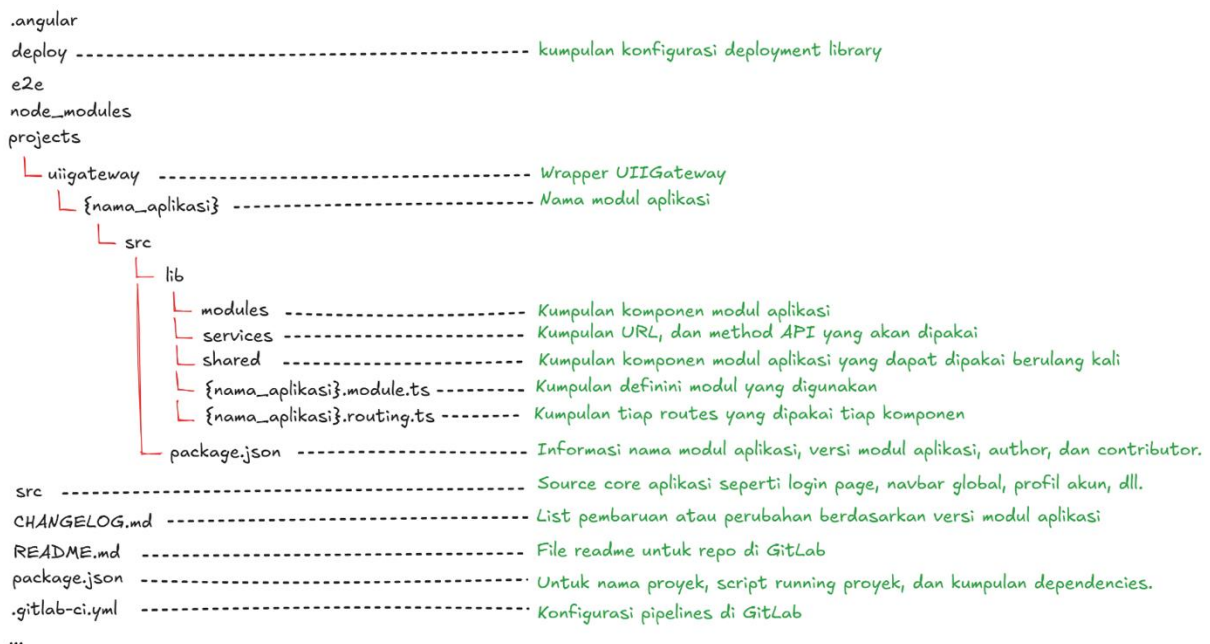 .angular
deploy kumpulan konfigurasi deployment library
e2e
node_modules
projects
uiigateway Wrapper UIIGateway
{nama_aplikasi} Nama modul aplikasi
src
lib
modules Kumpulan komponen modul aplikasi
services Kumpulan URL, dan method API yang akan dipakai
shared Kumpulan komponen modul aplikasi yang dapat dipakai berulang kali
{nama_aplikasi}.module.ts Kumpulan definini modul yang digunakan
{nama_aplikasi}.routing.ts Kumpulan tiap routes yang dipakai tiap komponen
package.json Informasi nama modul aplikasi, versi modul aplikasi, author, dan contributor.
src Source core aplikasi seperti login page, navbar global, profil akun, dll.
CHANGELOG.md List pembaruan atau perubahan berdasarkan versi modul aplikasi
README.md File readme untuk repo di GitLab
package.json Untuk nama proyek, script running proyek, dan kumpulan dependencies.
.gitlab-ci.yml Konfigurasi pipelines di GitLab
...